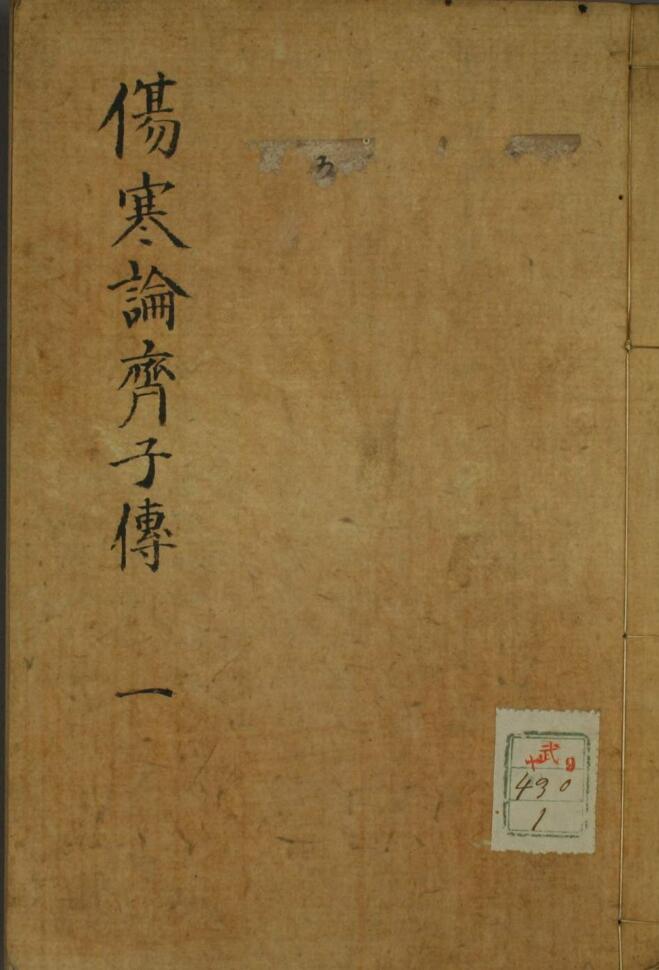 傷寒論齊子傳 一
武
430
1